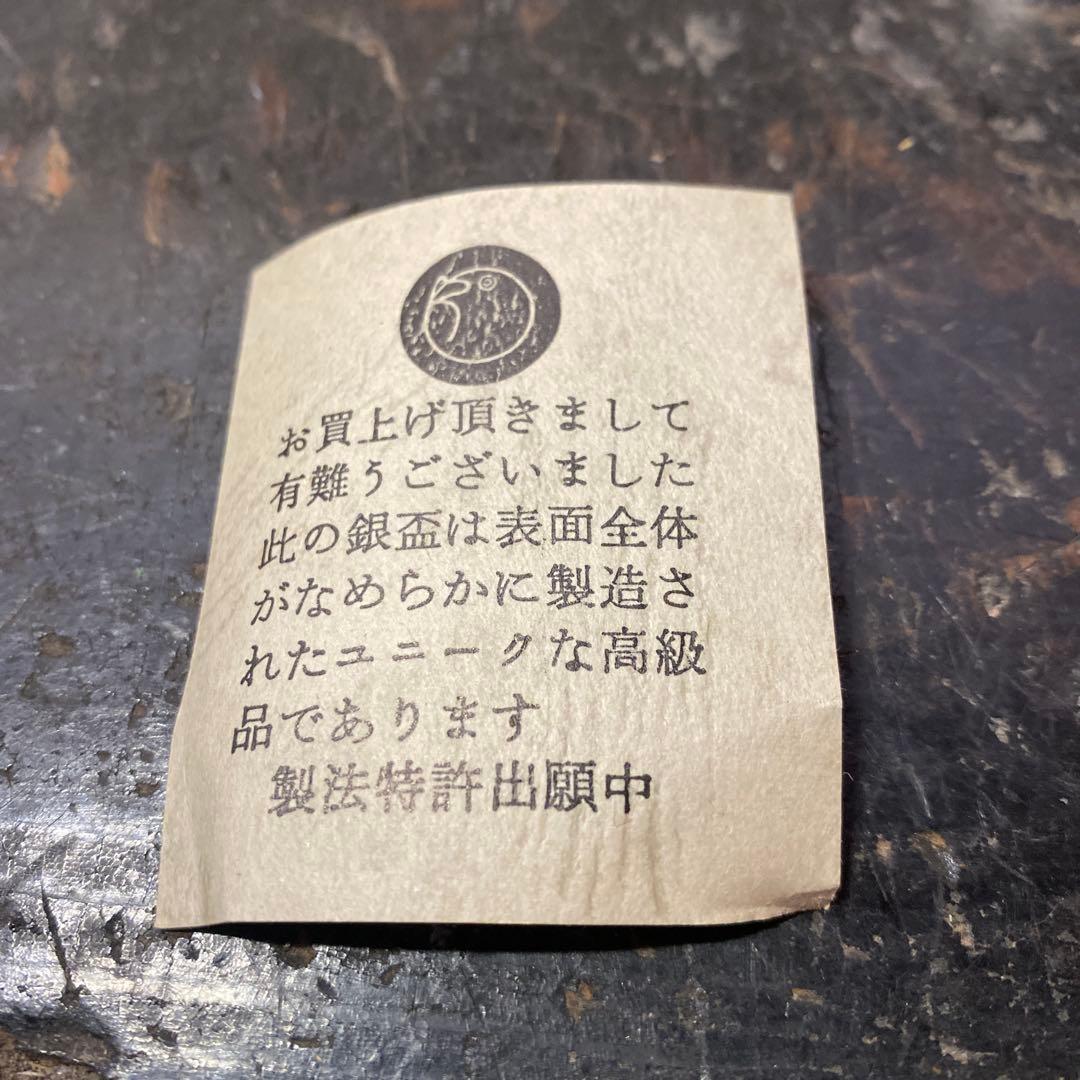 お買上げ頂きまして
有難うございました
此の銀盃は表面全体
がなめらかに製造さ
れたユニークな高級
品であります
製法特許出願中